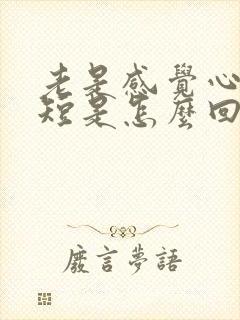 老是感覺心
短是怎麼回
廢言夢語